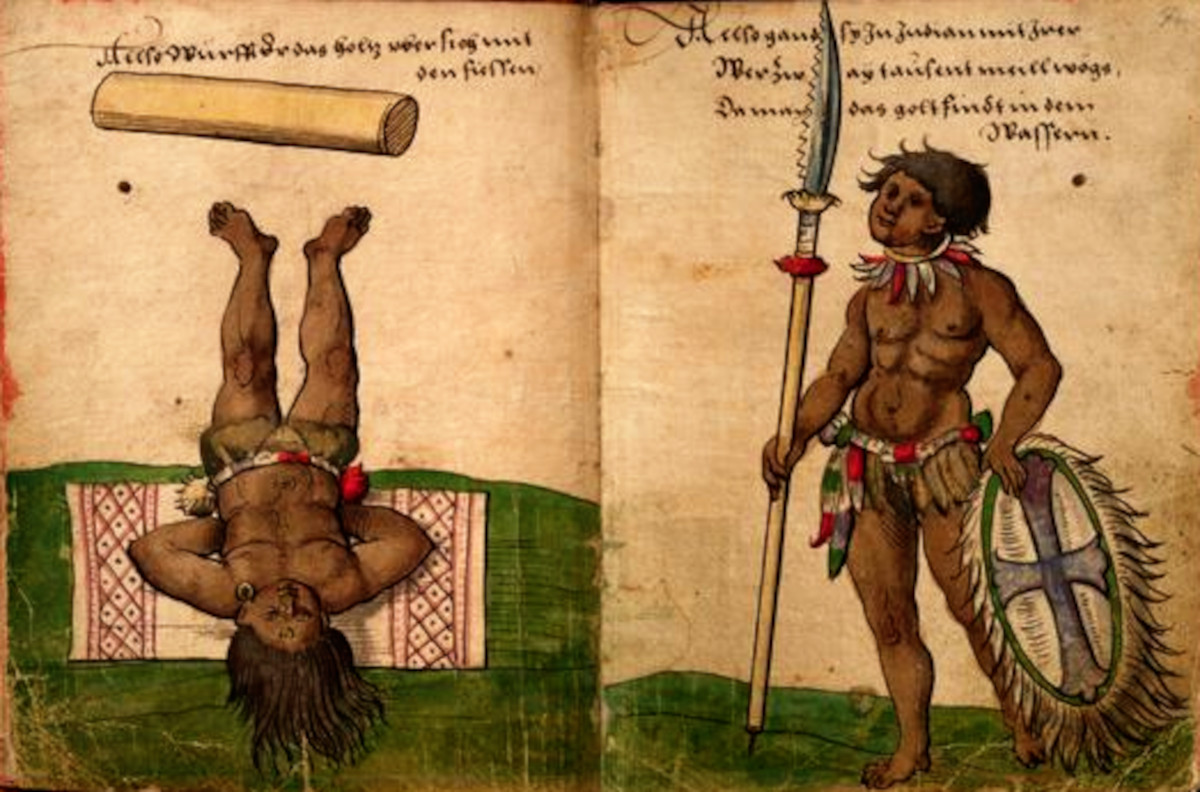 Allso Würfft Er das holtz uber sich mit
den fiessen
Allso gand sy In Indian mit Irer
Wer Zway tausent meill wögs,
Da man das golt findt in dem
Wassern.